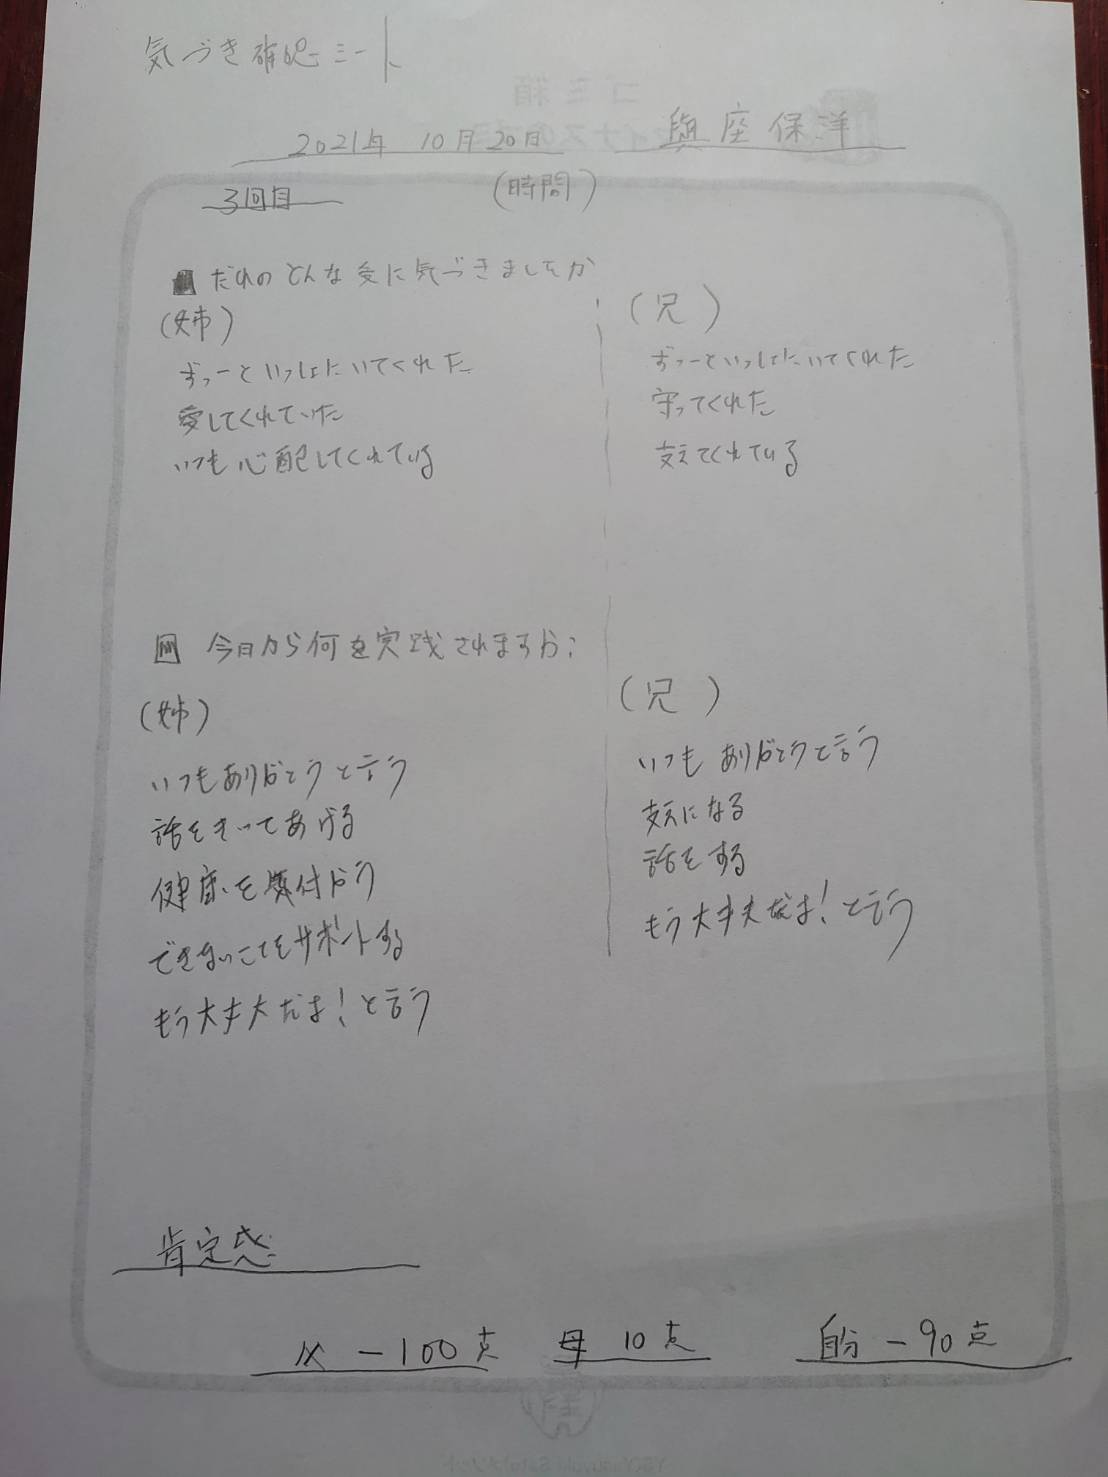 気づき確認シート
2021年 10月20日 與座保洋
3回目 (時間)
だれのどんな愛に気づきましたか
(姉)
ずっーといっしょにいてくれた
愛してくれていた
いつも心配してくれている
(兄)
ずっーといっしょにいてくれた
守ってくれた
支えてくれている
今日から何を実践されますか:
(姉)
いつもありがとうと言う
話をきいてあげる
健康を気付かう
できないことをサポートする
もう大丈夫だよ!と言う
(兄)
いつもありがとうと言う
支えになる
話をする
もう大丈夫だよ!と言う
肯定感
父 -100点 母 10点 自分 -90点